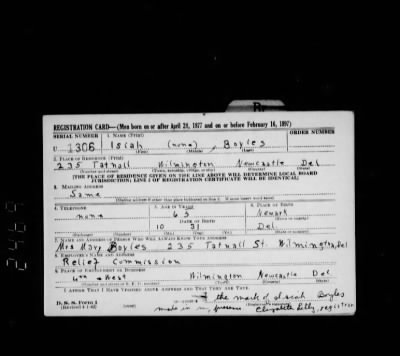 REGISTRATION CARD—(Men born on or after April 28, 1877 and on or before February 16, 1897)
SERIAL NUMBER 1. NAME (Print) ORDER NUMBER
U 1306 Isiah (none) Boyles
(First) (Middle) (Last)
2. PLACE OF RESIDENCE (Print)
235 Tatnall Wilmington Newcastle Del
(Number and street) (Town, township, village, or city) (County) (State)
[THE PLACE OF RESIDENCE GIVEN ON THE LINE ABOVE WILL DETERMINE LOCAL BOARD
JURISDICTION; LINE 2 OF REGISTRATION CERTIFICATE WILL BE IDENTICAL]
3. MAILING ADDRESS
Same
[Mailing address if other than place indicated on line 2. If same insert word same]
4. TELEPHONE 5. AGE IN YEARS 6. PLACE OF BIRTH
none 63 Newark
DATE OF BIRTH (Town or county)
10 31 Del
7. NAME AND ADDRESS OF PERSON WHO WILL ALWAYS KNOW YOUR ADDRESS
Mrs Mary Boyles 235 Tatnall St. Wilmington, Del
8. EMPLOYER'S NAME AND ADDRESS
Relief Commission
9. PLACE OF EMPLOYMENT OR BUSINESS
West Wilmington Newcastle Del
I AFFIRM THAT I HAVE VERIFIED ABOVE ANSWERS AND THAT THEY ARE TRUE.
D. S. S. Form 1
(Revised 4-1-42)
the mark of Isiah Boyles
made in my presence Elizabeth registrar
2469